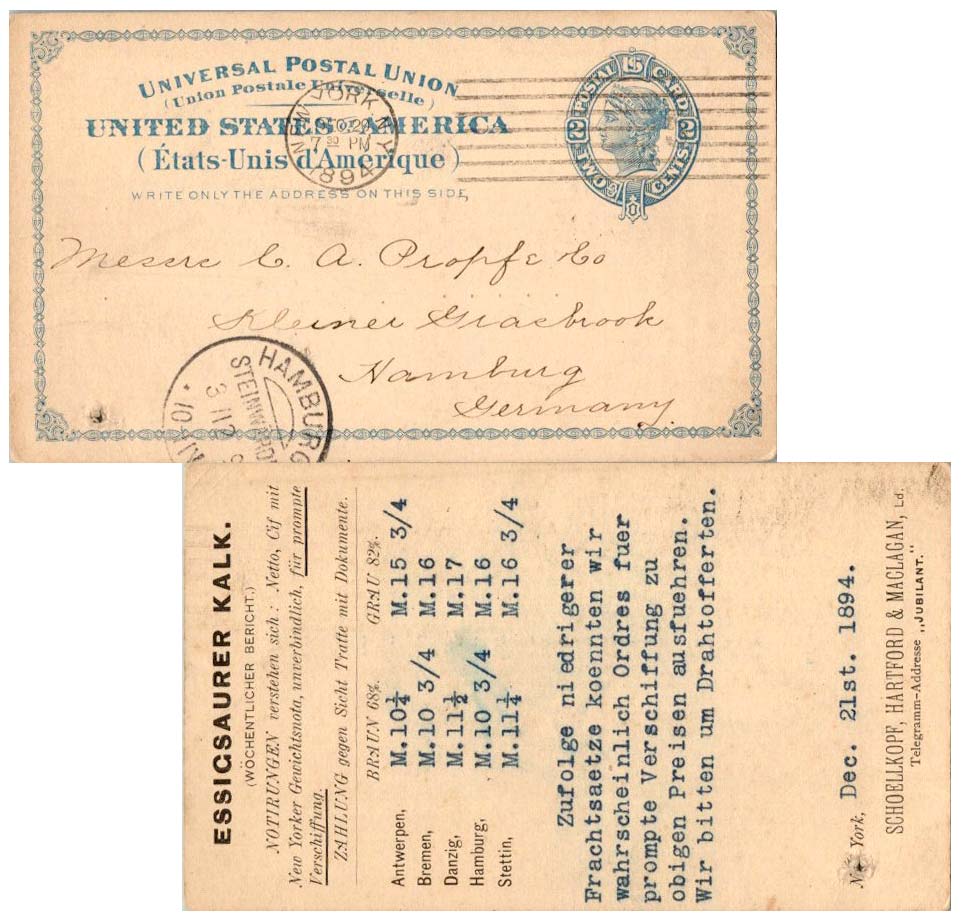 UNIVERSAL POSTAL UNION
(Union Postale Universelle)
UNITED STATES OF AMERICA
(États-Unis d'Amérique)
WRITE ONLY THE ADDRESS ON THIS SIDE,
NEW YORK, N.Y.
7 30 PM
1894
POSTAL CARD
2 2
TWO CENTS
Messrs C. A. Propfe & Co
Kleiner Grasbrook
Hamburg
Germany.
HAMBURG
STEINWÄRDER
3 1 12
10-11 V
ESSIGSAURER KALK.
(WÖCHENTLICHER BERICHT.)
NOTIRUNGEN verstehen sich: Netto, Cif mit
New Yorker Gewichtsnota, unverbindlich, für prompte
Verschiffung.
ZAHLUNG gegen Sicht Tratte mit Dokumente.
BRAUN 68%. GRAU 82%.
Antwerpen, M.10¼ M.15 3/4
Bremen, M.10 3/4 M.16
Danzig, M.11½ M.17
Hamburg, M.10 3/4 M.16
Stettin, M.11¼ M.16 3/4
Zufolge niedrigerer
Frachtsaetze koennten wir
wahrscheinlich Ordres fuer
prompte Verschiffung zu
obigen Preisen ausfuehren.
Wir bitten um Drahtofferten.
New York, Dec. 21st. 1894.
SCHOELLKOPF, HARTFORD & MACLAGAN, Ld.
Telegramm-Addresse „JUBILANT."